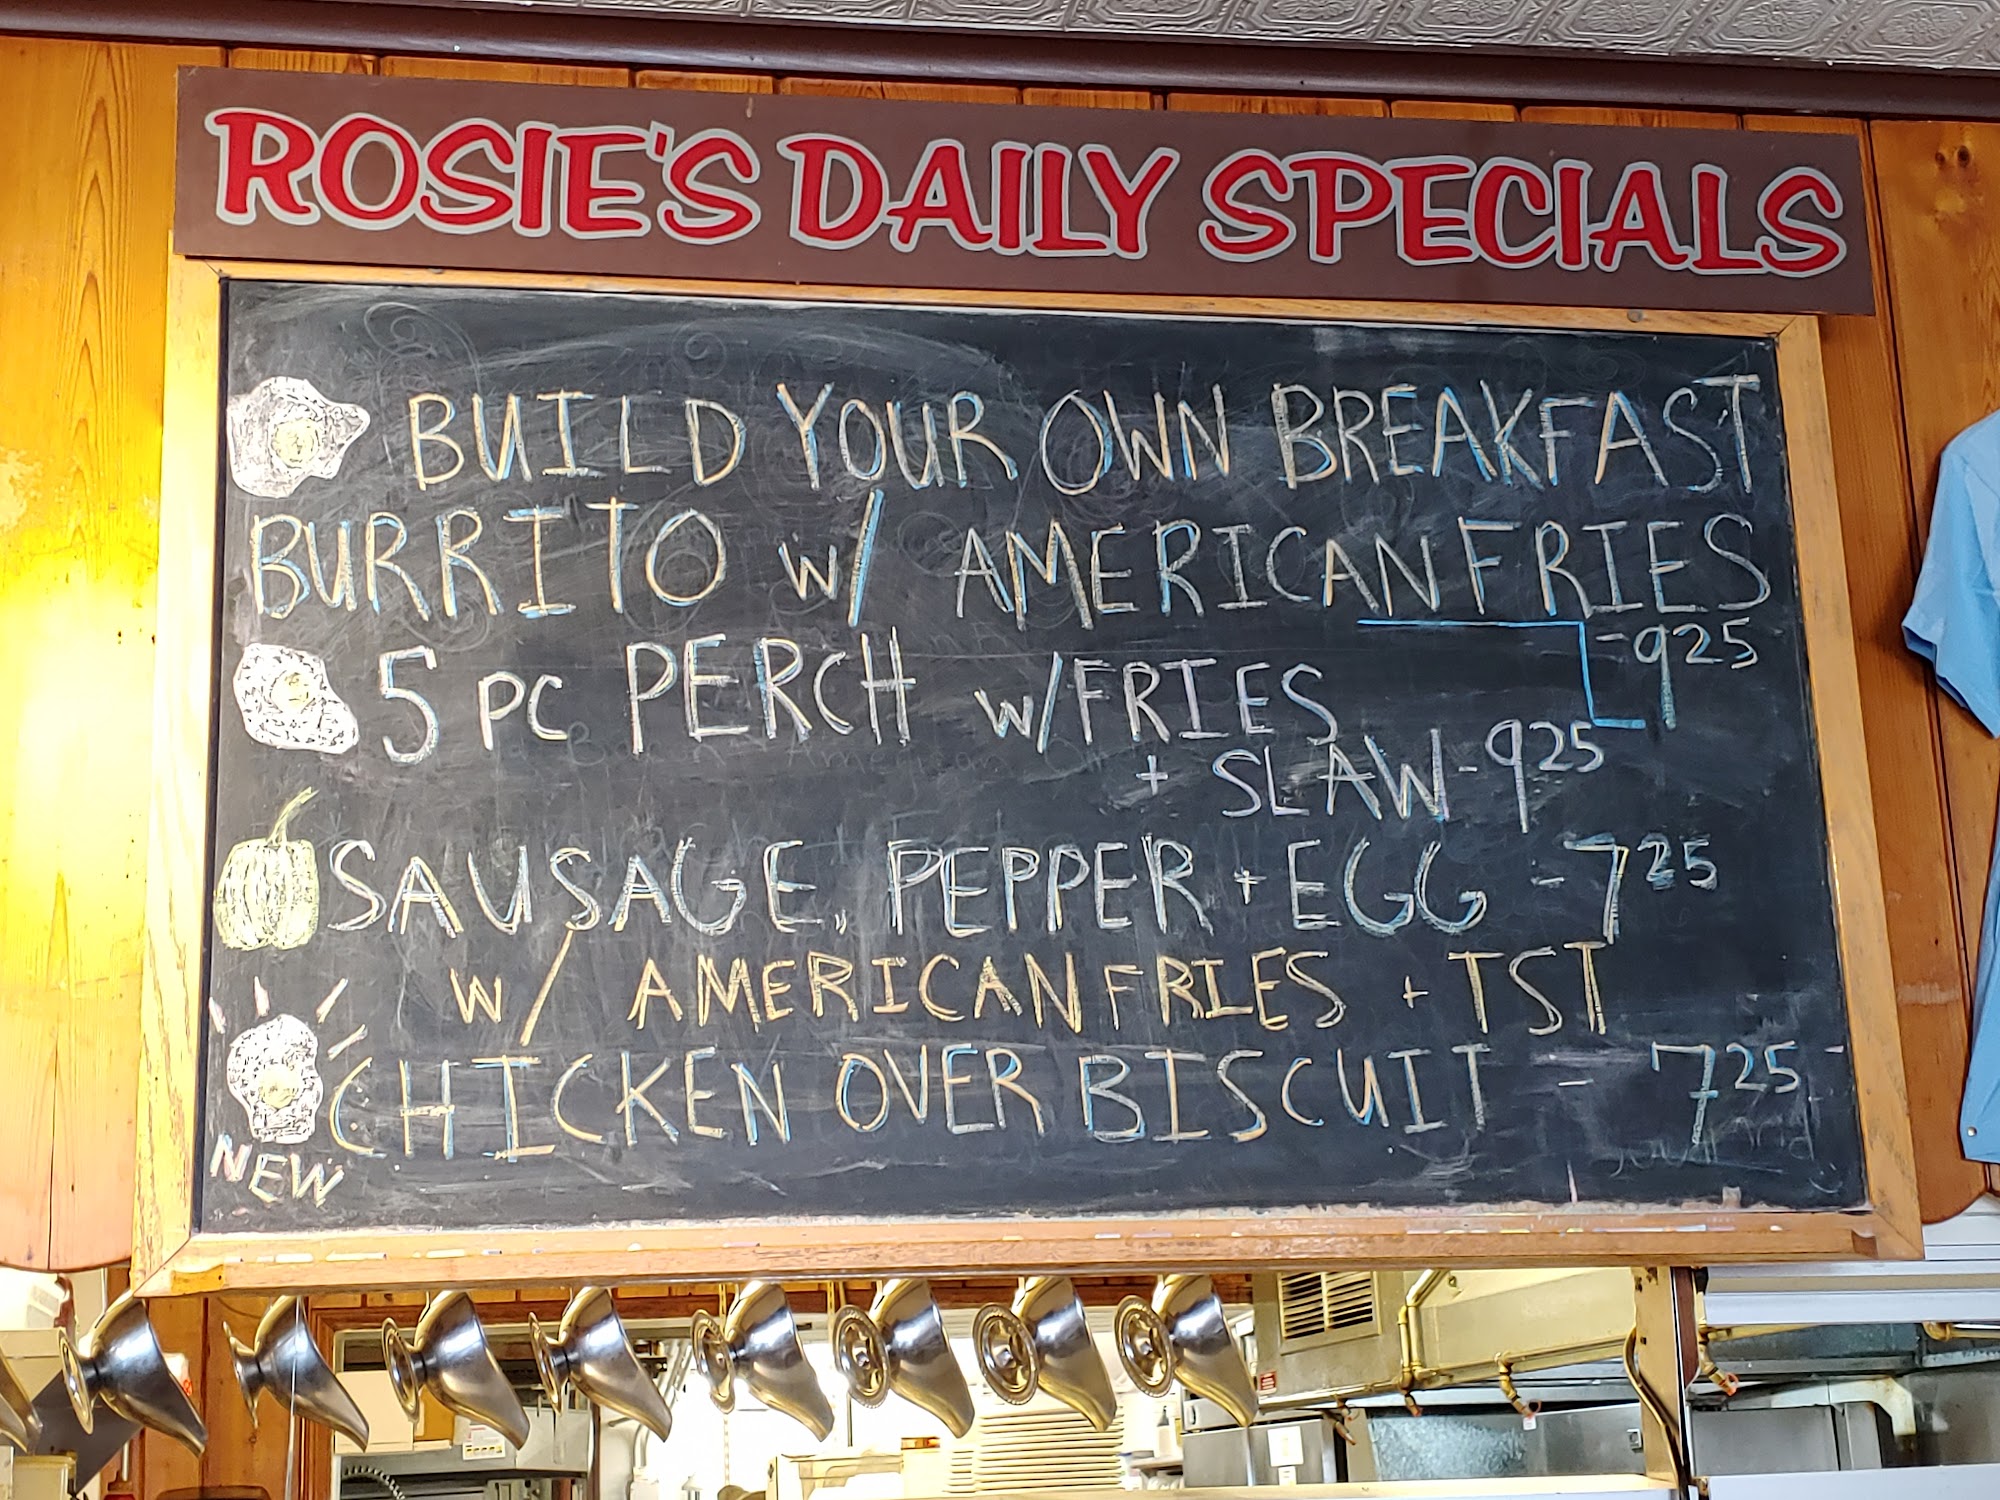 ROSIE'S DAILY SPECIALS
BUILD YOUR OWN BREAKFAST
BURRITO W/ AMERICAN FRIES
-925
5 PC PERCH W/FRIES
+ SLAW-925
SAUSAGE, PEPPER + EGG -725
W/ AMERICAN FRIES + TST
CHICKEN OVER BISCUIT - 725
NEW